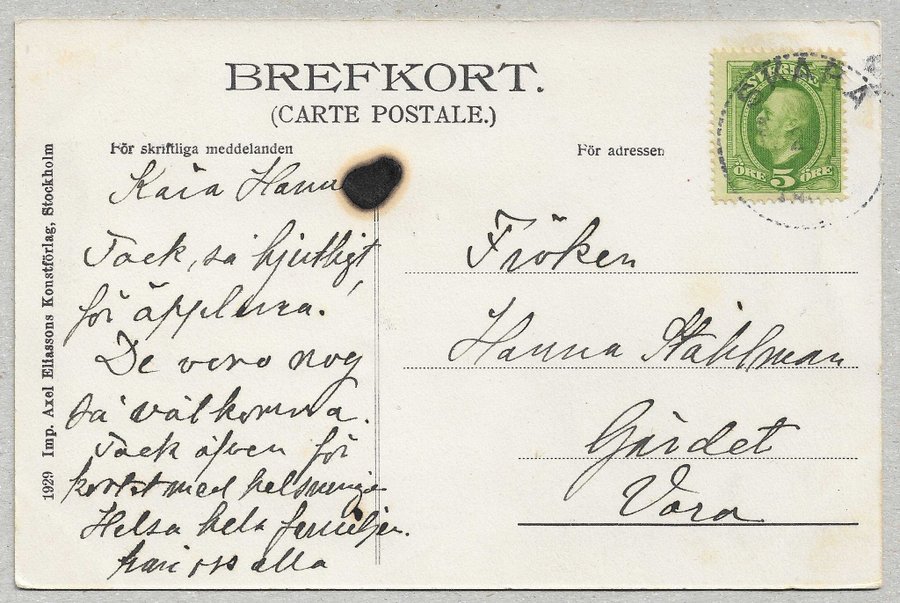 BREFKORT.
(CARTE POSTALE.)
För skriftliga meddelanden
För adressen
SVERIGE
ÖRE 5 ÖRE
SKARA
Kära Hann
Tack, så hjertligt
för äpplena!
De voro nog
så välkomna.
Tack äfven för
kortet med helsningen
Helsa hela familjen
från oss alla
Fröken
Hanna Ståhlman
Gärdet
Vara
1929 Imp. Axel Eliassons Konstförlag, Stockholm